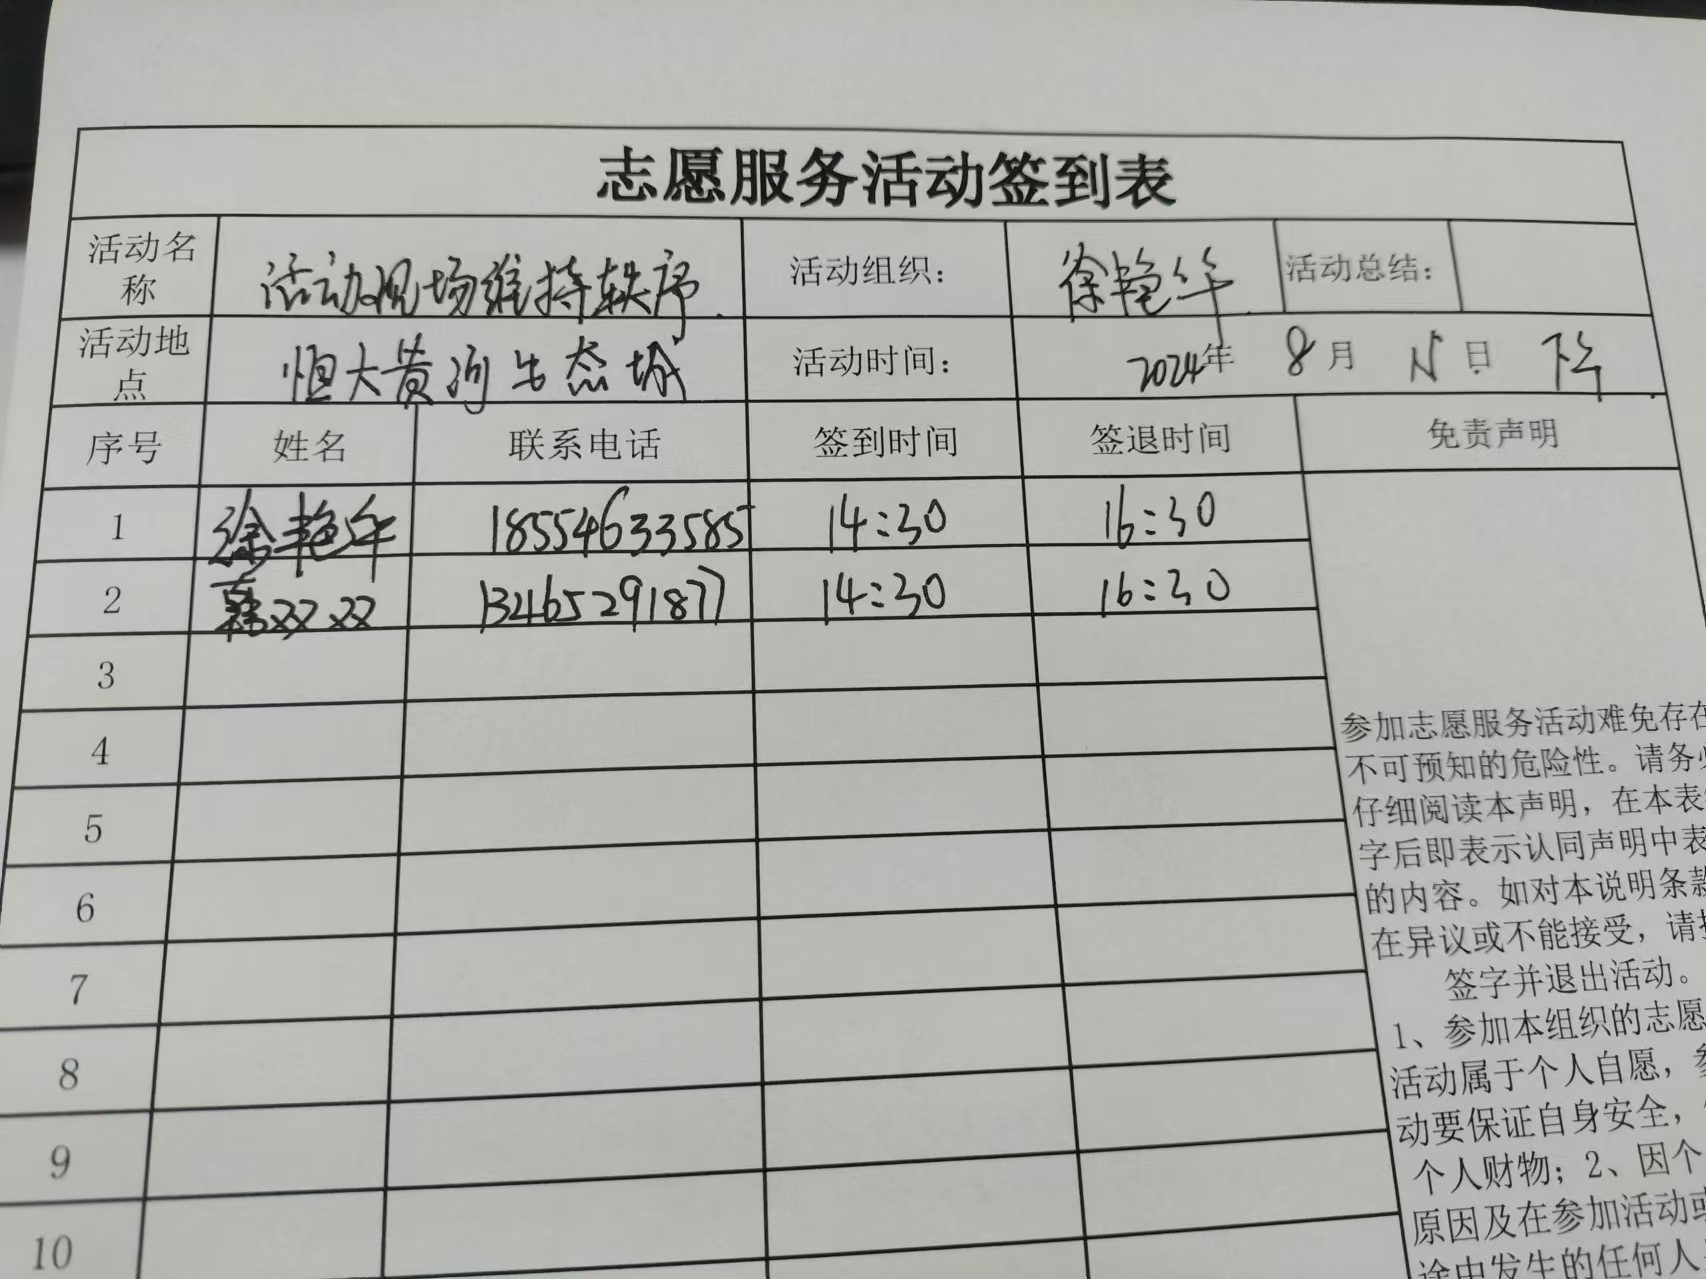 志愿服务活动签到表
活动名称 活动现场维持轶序. 活动组织： 徐艳华 活动总结：
活动地点 恒大黄河生态城 活动时间： 2024年 8月 15日 下午
序号 姓名 联系电话 签到时间 签退时间 免责声明
1 徐艳华 18554633585 14:30 16:30
2 韩双双 13465291877 14:30 16:30
3
4
5
6
7
8
9
10
参加志愿服务活动难免存在
不可预知的危险性。请务必
仔细阅读本声明，在本表
字后即表示认同声明中表
的内容。如对本说明条款
在异议或不能接受，请
签字并退出活动。
1、参加本组织的志愿
活动属于个人自愿，参
动要保证自身安全，
个人财物；2、因个
原因及在参加活动或
途中发生的任何人